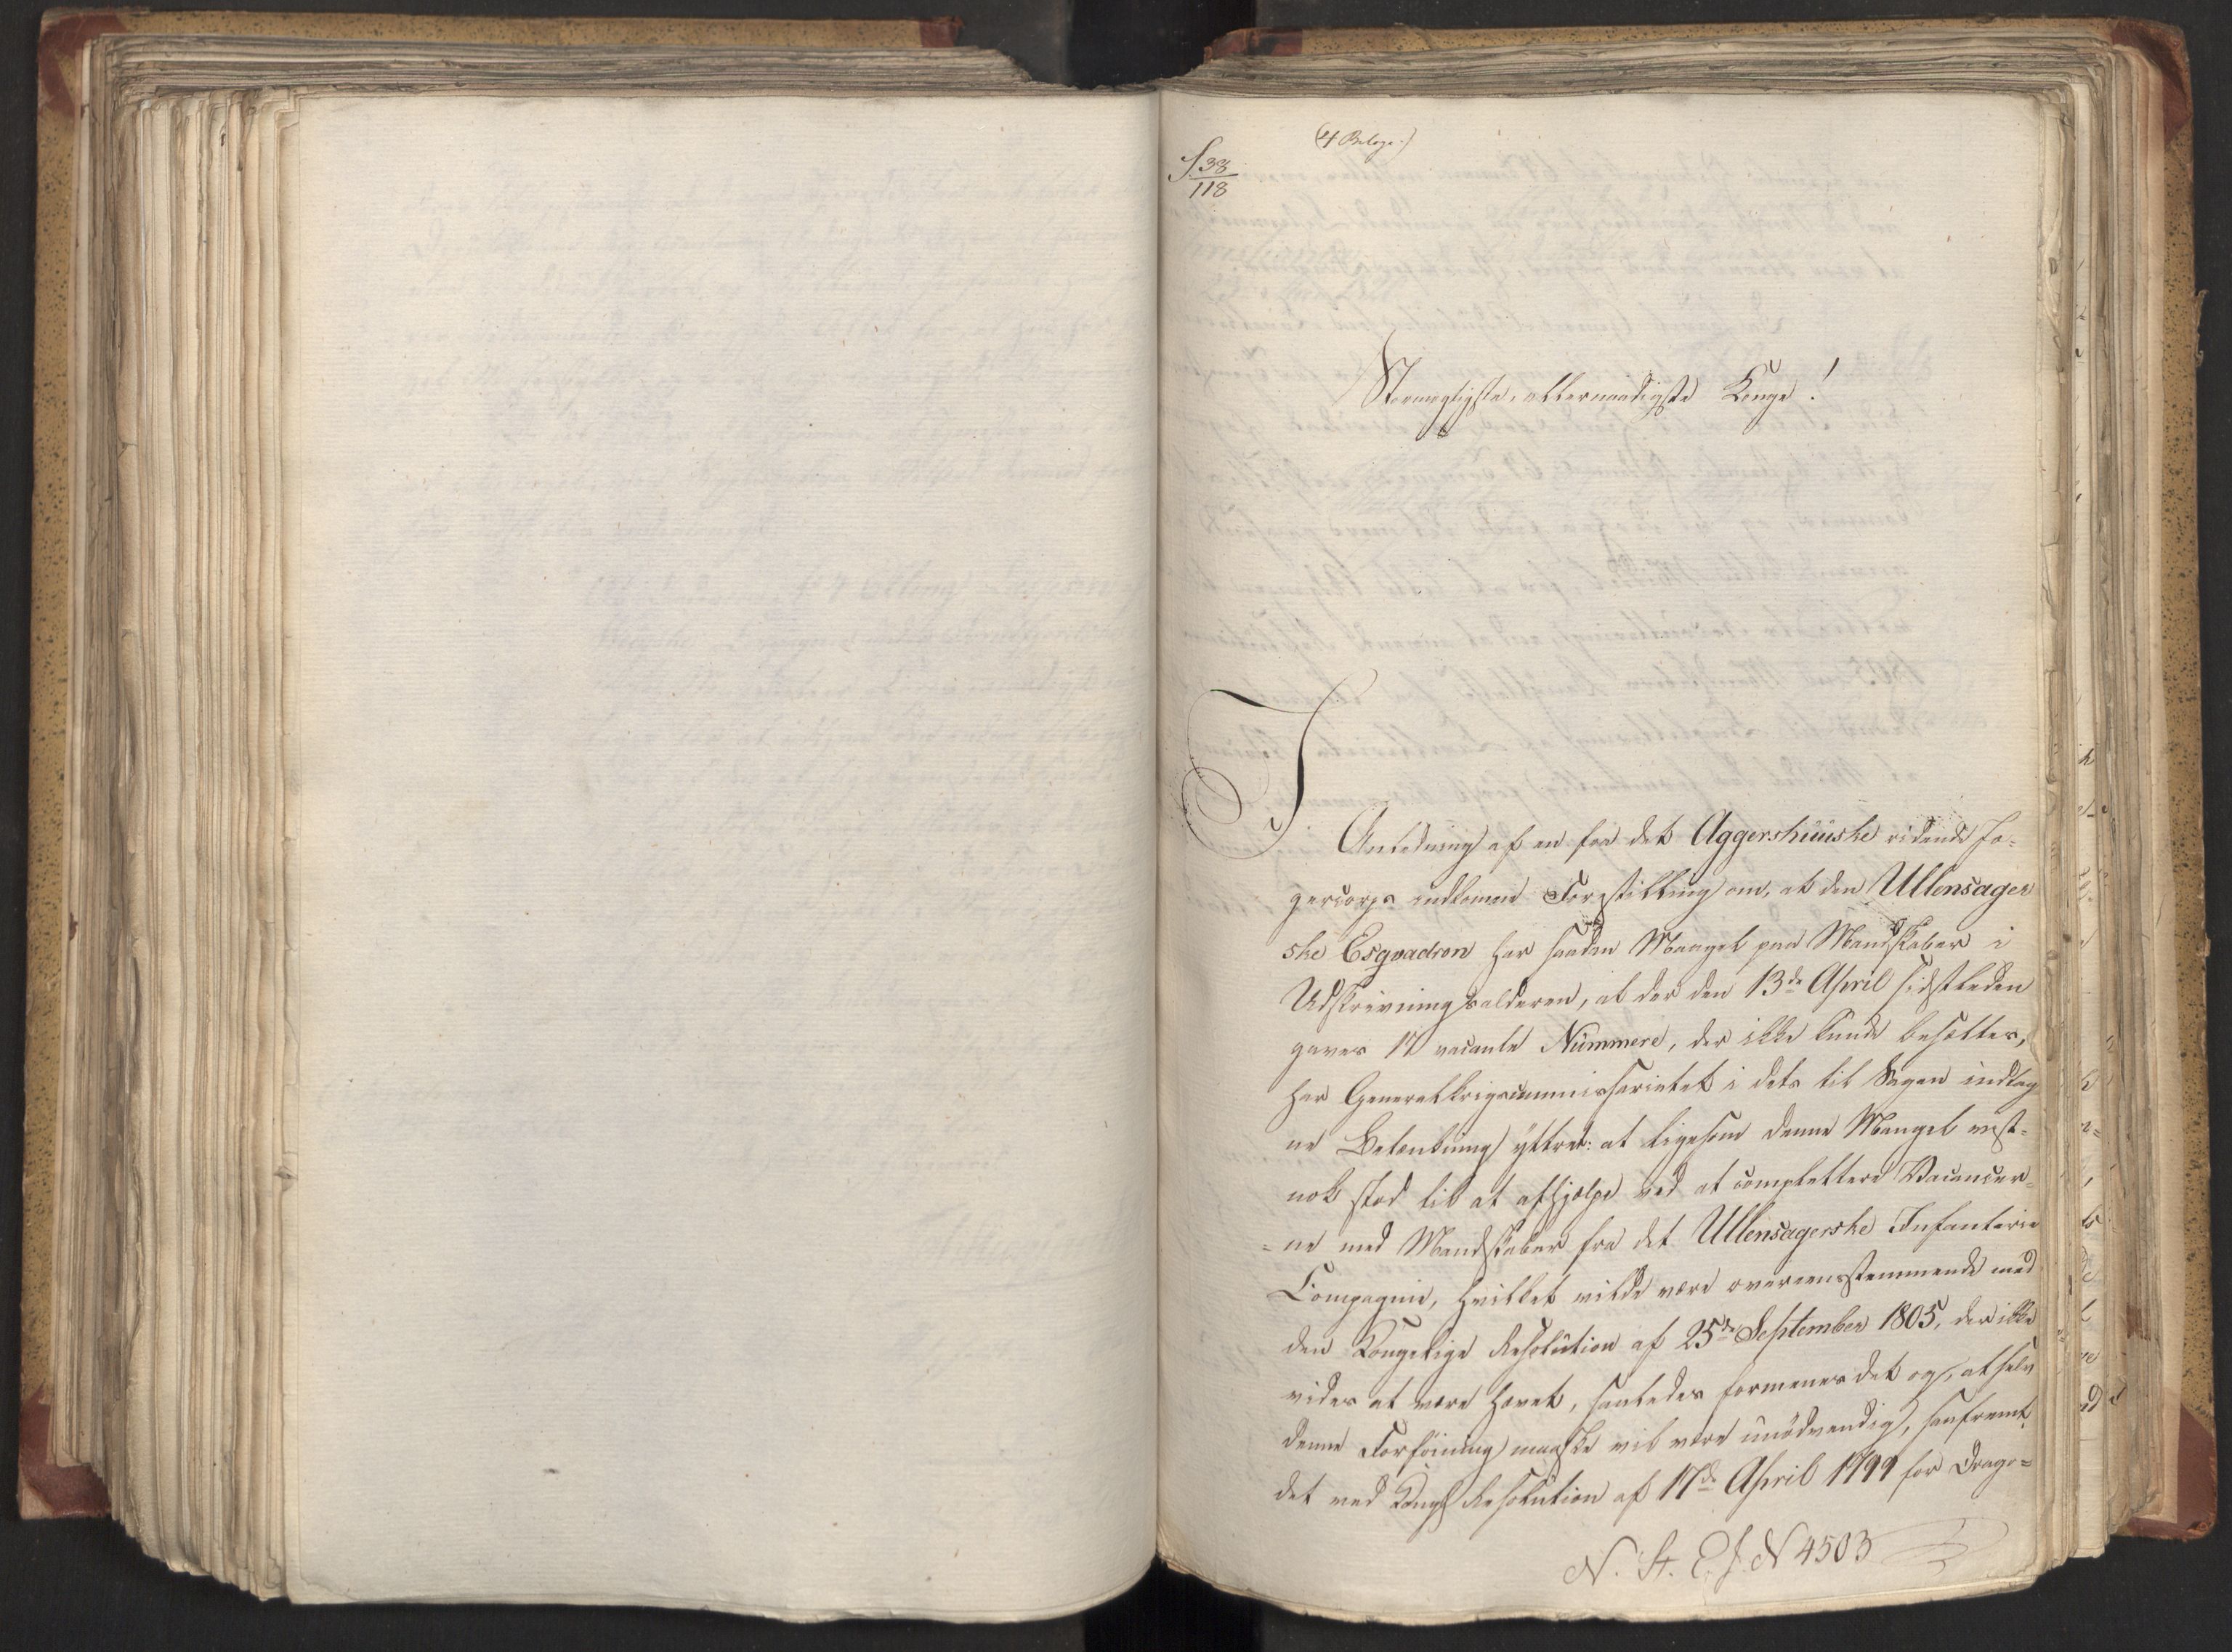 (4 Belage.)
S 38
118
Stormægtigste, allernaadigste Konge!
I
Anledning af en fra det Aggershuuske ridende Jæ-
gercorps indkommen Forestilling om, at den Ullensager
ske Esqvadron har saadan Mangel paa Mandskaber i
Udskrivningsalderen, at der den 13de April sidstleden
gaves 17 vacante Nummere, der ikke kunde besættes,
har Generalkrigscommissariatet i dets til Sagen indtag
ne Betænkning yttret: at ligesom denne Mangel vist-
nok stod til at afhjælpe ved at complettere Vacancer-
-ne med Mandskaber fra det Ullensagerske Infanterie
Compagnie, hvilket vilde være overeensstemmende med
den Kongelige Resolution af 25de September 1805, der ikke
vides at være hævet, saaledes formenes det og, at selv
denne Forføining maaskee vil være unødvendig, saafremt
det ved Kongl Resolution af 17de April 1799 for Drago-
N. St. E. J. N 4503